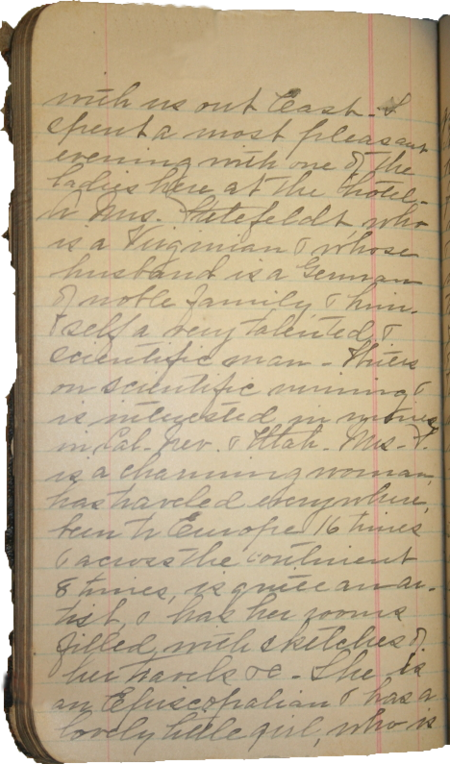 with us out East. I
spent a most pleasant
evening with one of the
ladies here at the hotel-
a Mrs. Stetefeldt who
is a Virginian & whose
husband is a German
of noble family, & him-
self a very talented &
scientific man - Writes
on scientific mining &
is interested in mines
in Cal. Nev. & Utah. Mrs. S.
is a charming woman,
has traveled everywhere,
been to Europe 16 times
& across the continent
8 times, is quite an ar-
tist, & has her rooms
filled with sketches of
her travels &c - She is
an Episcopalian & has a
lovely little girl, who is